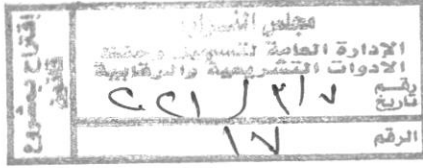 مجلس النواب
الإدارة العامة لتسجيل وحفظ
الأدوات التشريعية والرقابية
رقم
تاريخ ٢٠٢١ / ٣ / ٧
الرقم ١٧
اقتراح بمشروع
قانون